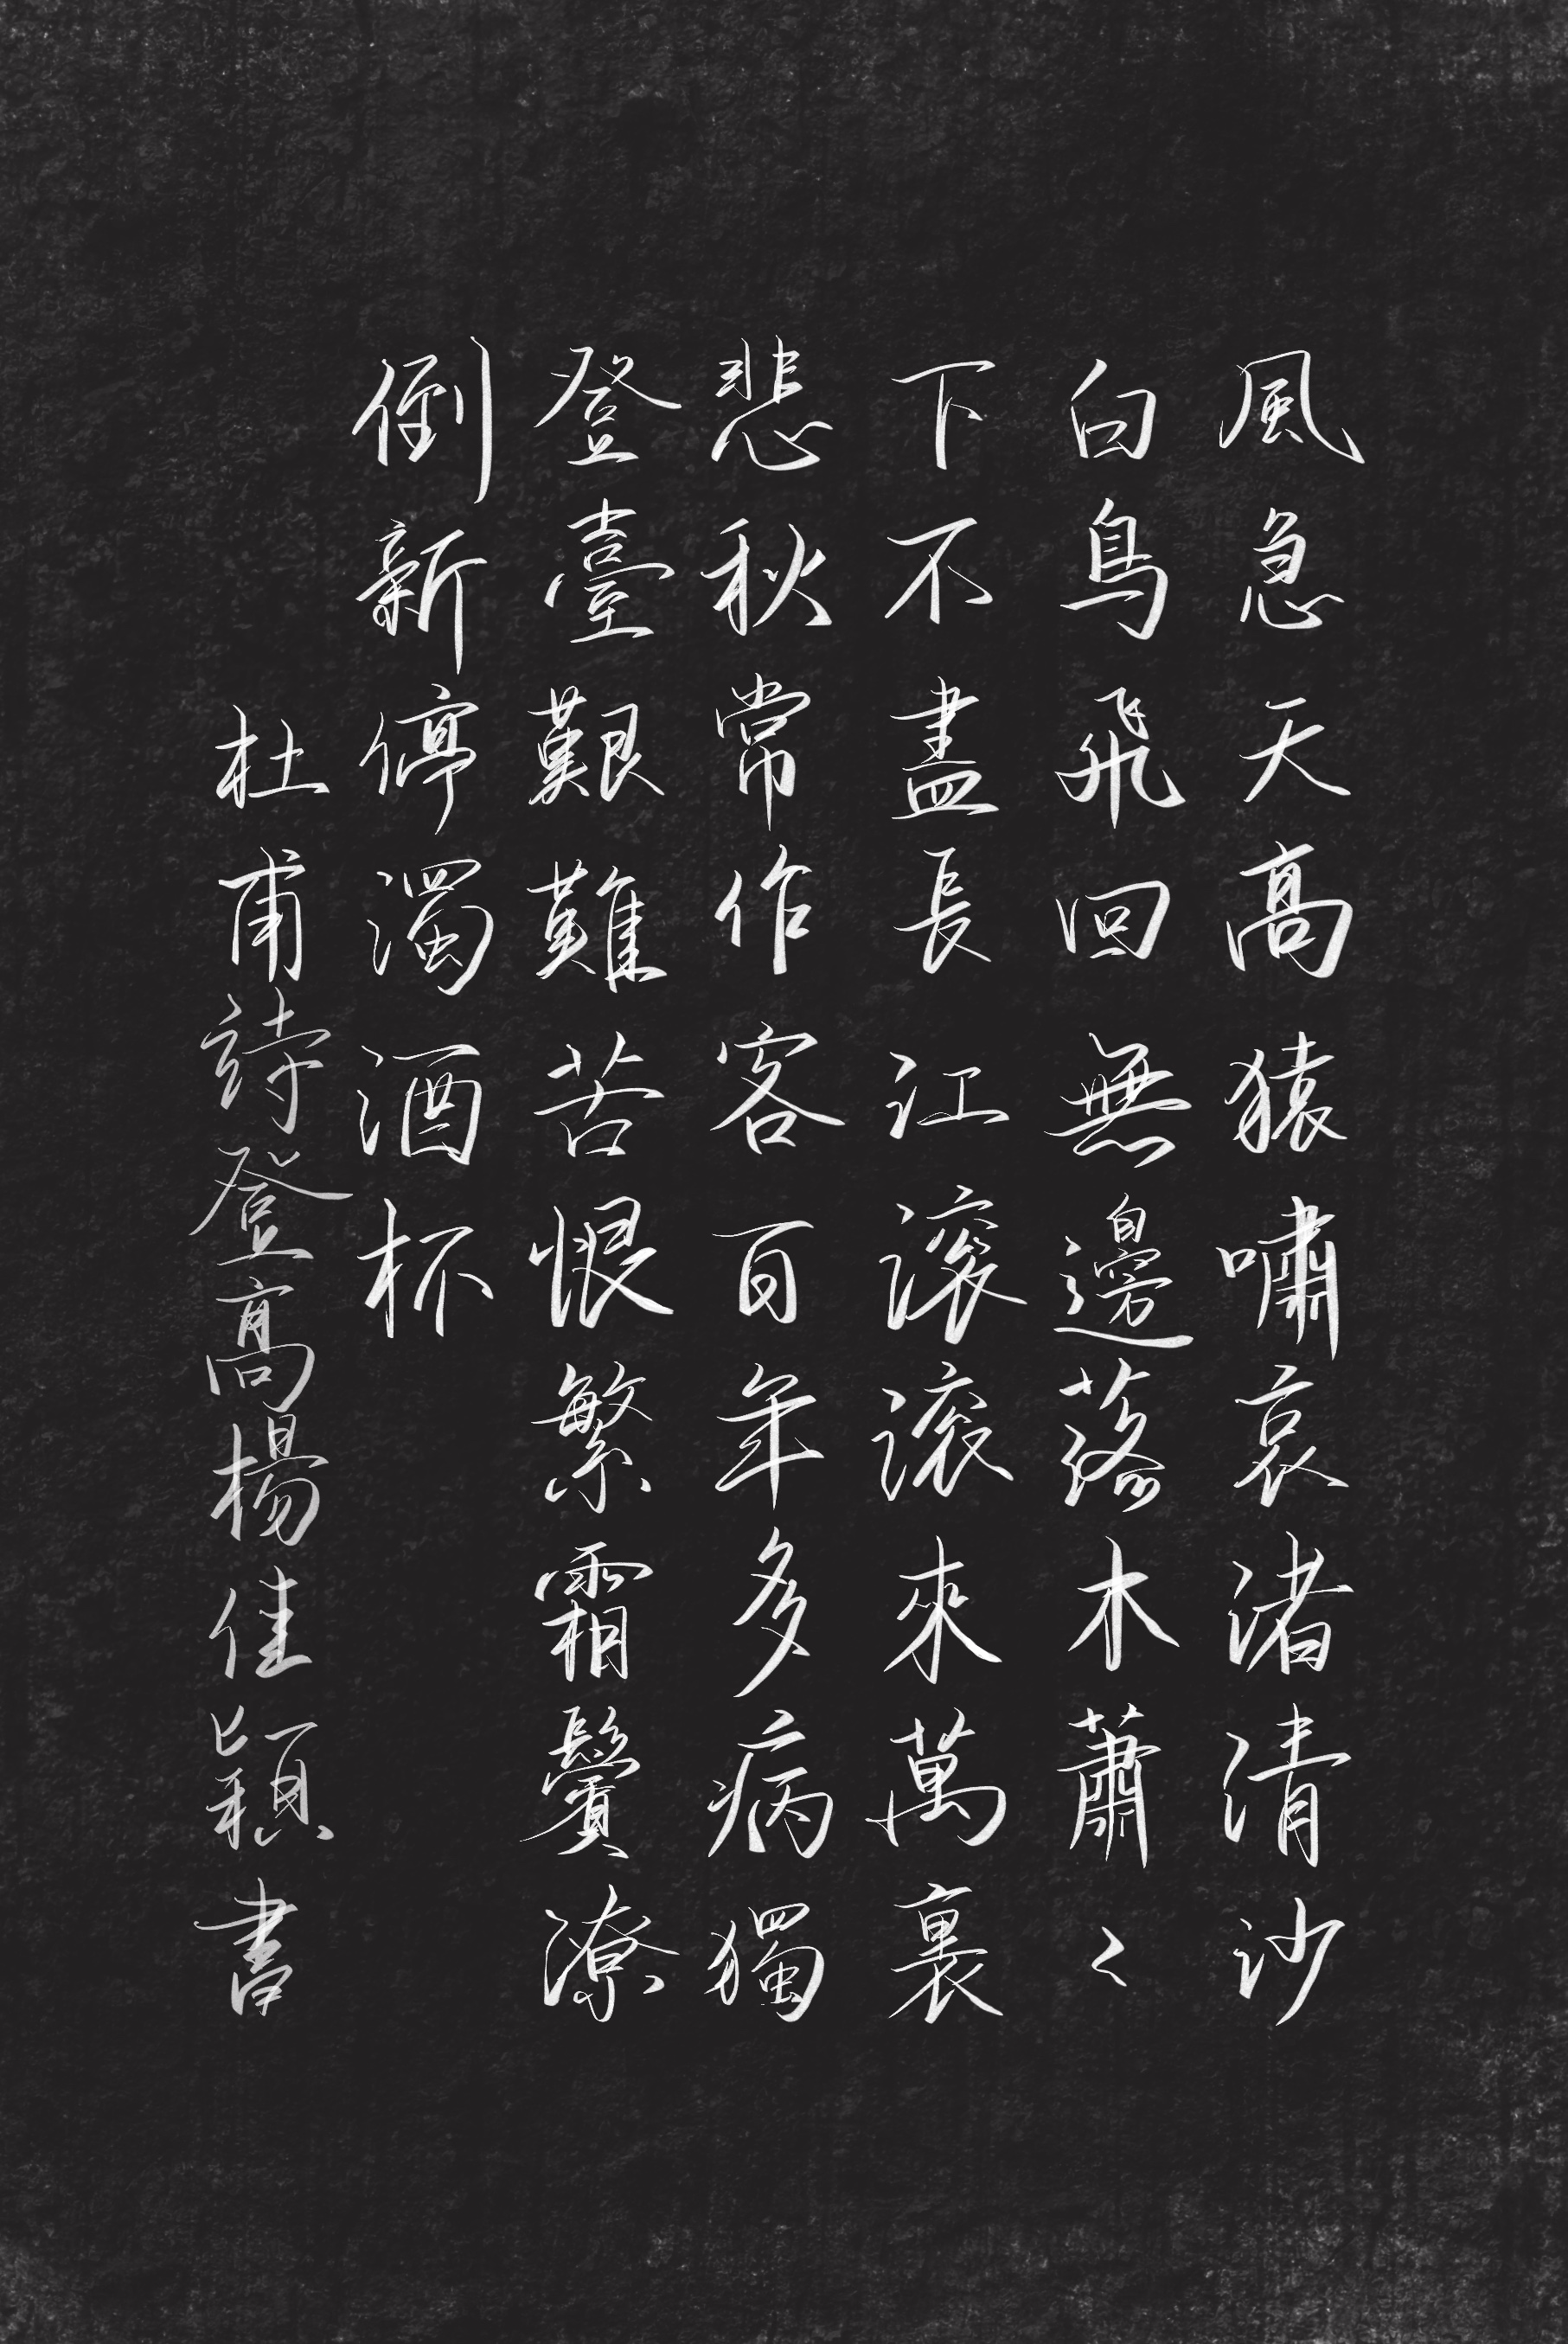 風急天高猿嘯哀渚清沙
白鳥飛回無邊落木蕭〻
下不盡長江滾滾來萬裏
悲秋常作客百年多病獨
登臺艱難苦恨繁霜鬢潦
倒新停濁酒杯
杜甫詩登高楊佳穎書